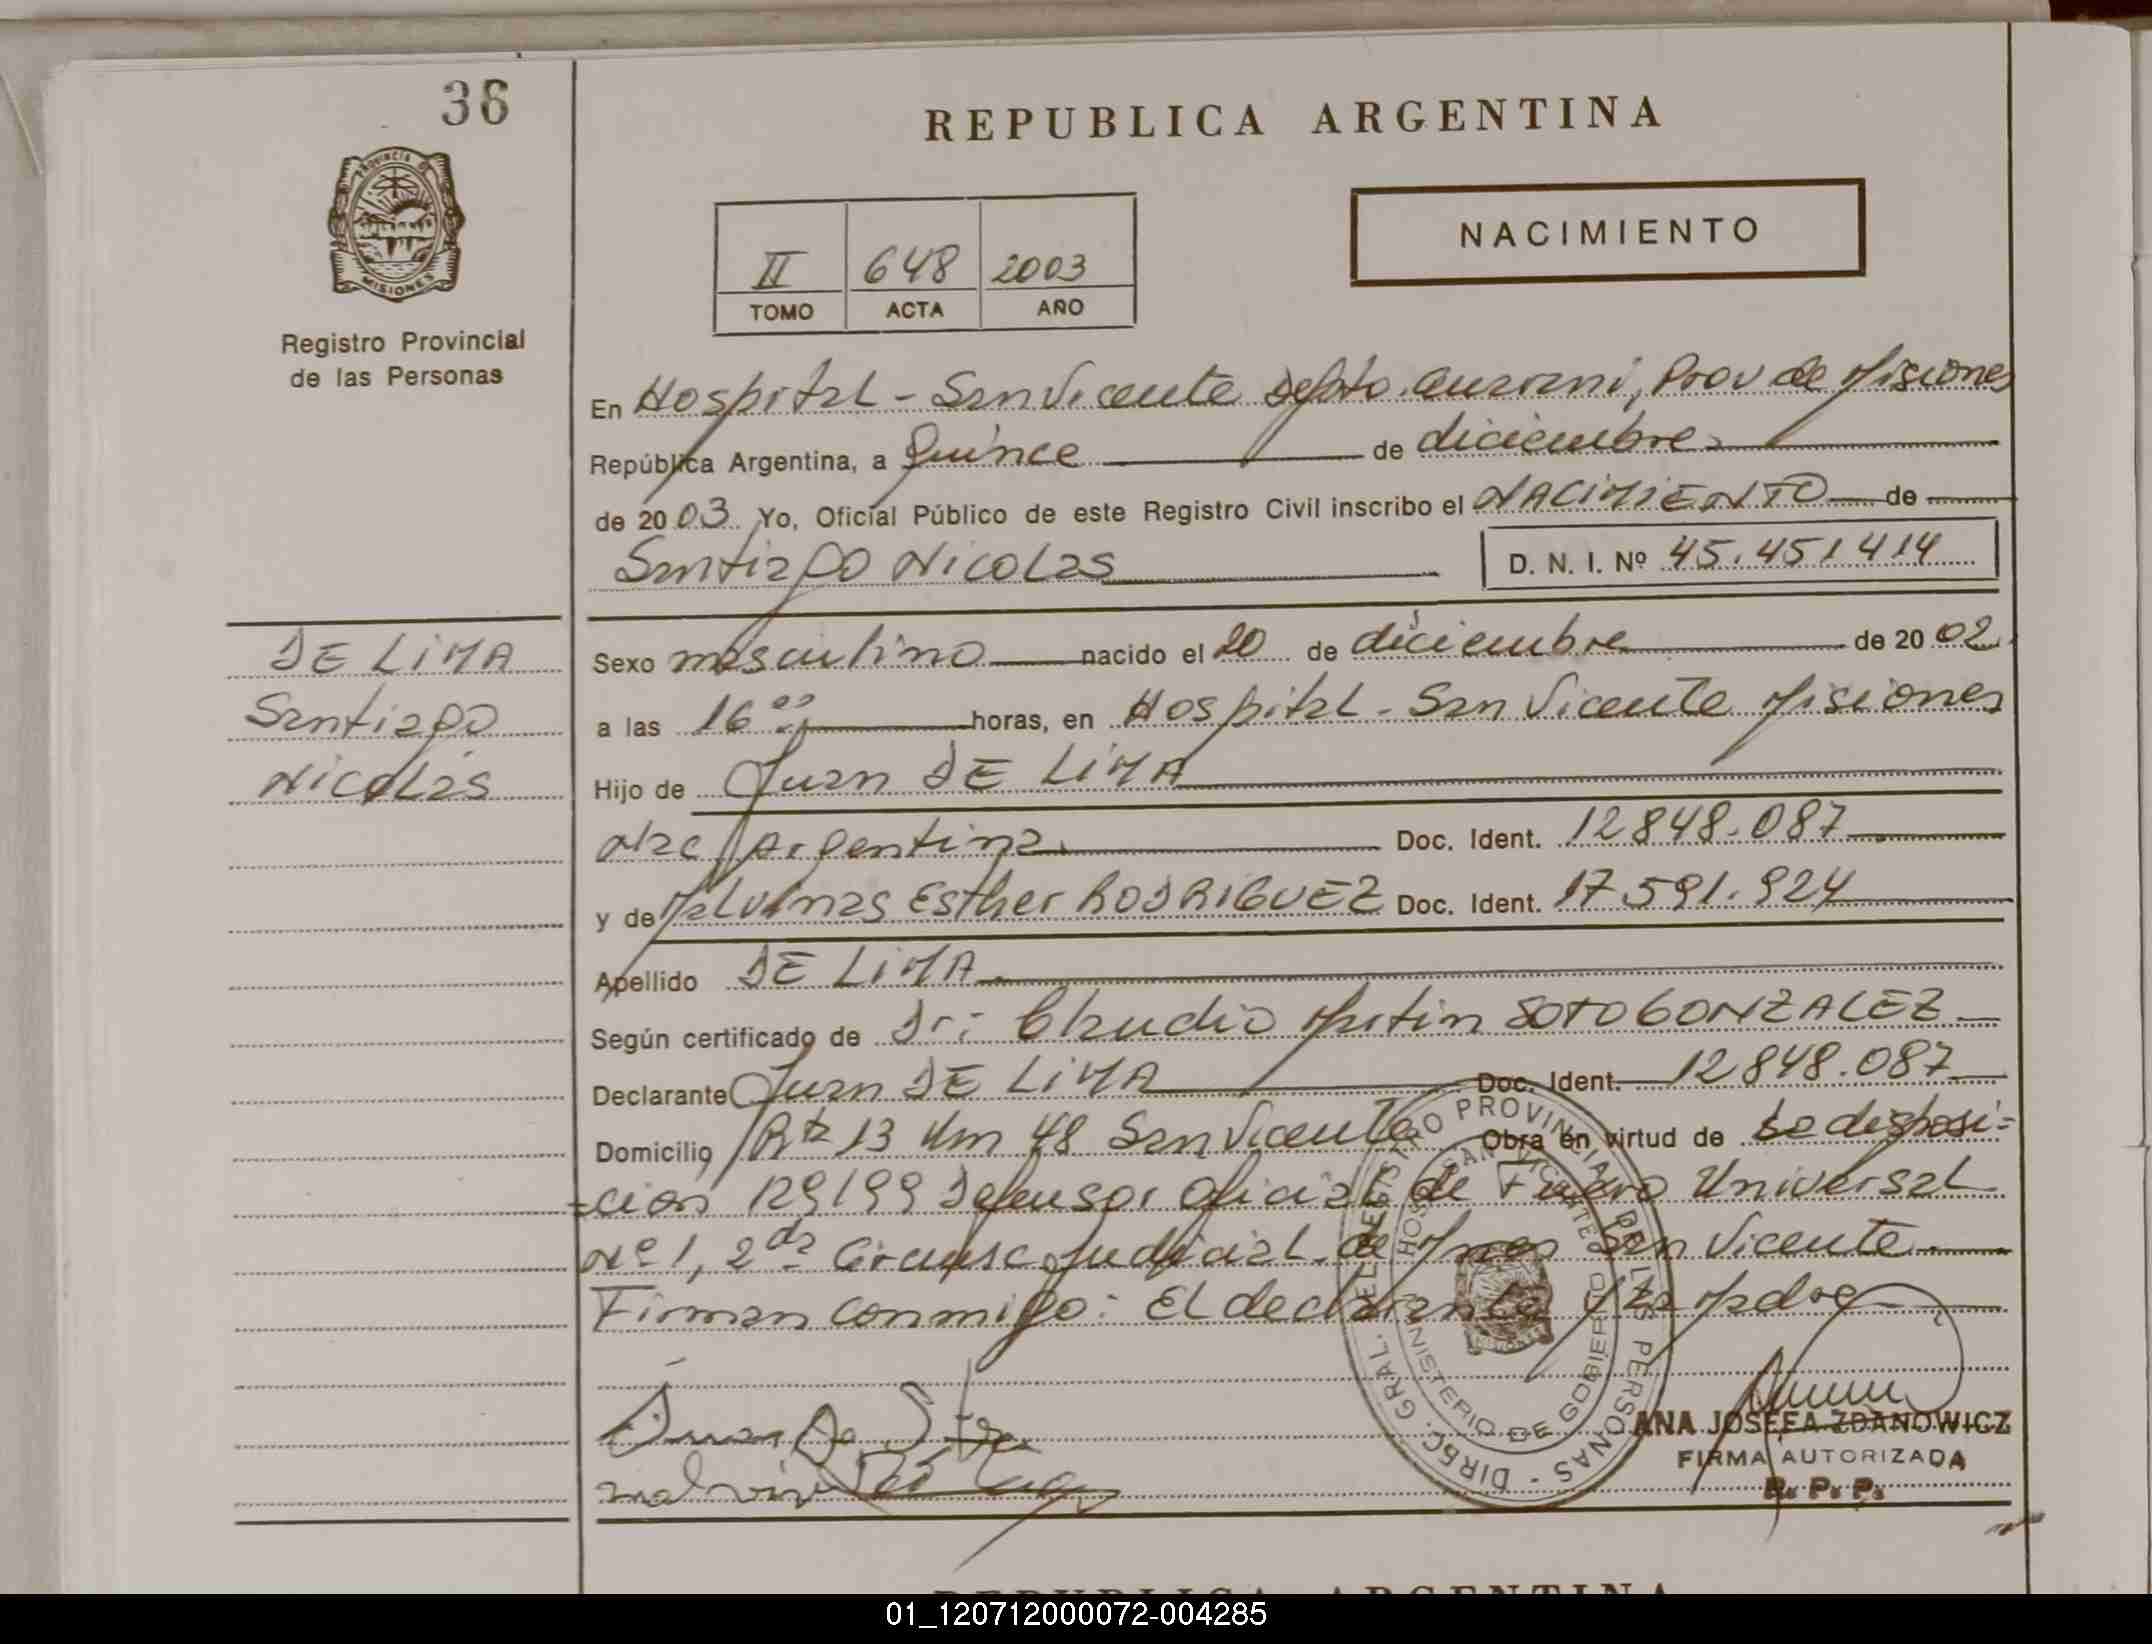 36
REPUBLICA ARGENTINA
PROVINCIA DE MISIONES
NACIMIENTO
II 648 2003
TOMO ACTA AÑO
Registro Provincial
de las Personas
En Hospital - San Vicente Depto. Guarani, Prov de Misiones
República Argentina, a Quince de diciembre
de 2003 Yo, Oficial Público de este Registro Civil inscribo el NACIMIENTO de
Santiago Nicolas D. N. I. Nº 45.451414
DE LIMA
Santiago
Nicolas
Sexo masculino nacido el 20 de diciembre de 2002
a las 16 horas, en Hospital - San Vicente Misiones
Hijo de Juan DE LIMA
Nac Argentina Doc. Ident. 12848.087
y de Malvinas Esther RODRIGUEZ Doc. Ident. 17.591.924
Apellido DE LIMA
Según certificado de Dr: Claudio Martin SOTO GONZALEZ
Declarante Juan DE LIMA Doc. Ident. 12848.087
Domicilio Rta 13 Km 48 San Vicente Obra en virtud de disposi=
=cion 129199 Defensor Oficial de Fuero Universal
Nº 1, 2da Circunsc Judicial de Mnes San Vicente
Firman conmigo: El declarante y la Madre
DIREC. GRAL. DEL REGISTRO PROVINCIAL DE LAS PERSONAS
HOSP. SAN VICENTE
MINISTERIO DE GOBIERNO
ANA JOSEFA ZDANOWICZ
FIRMA AUTORIZADA
R. P. P.
REPUBLICA ARGENTINA
01_120712000072-004285